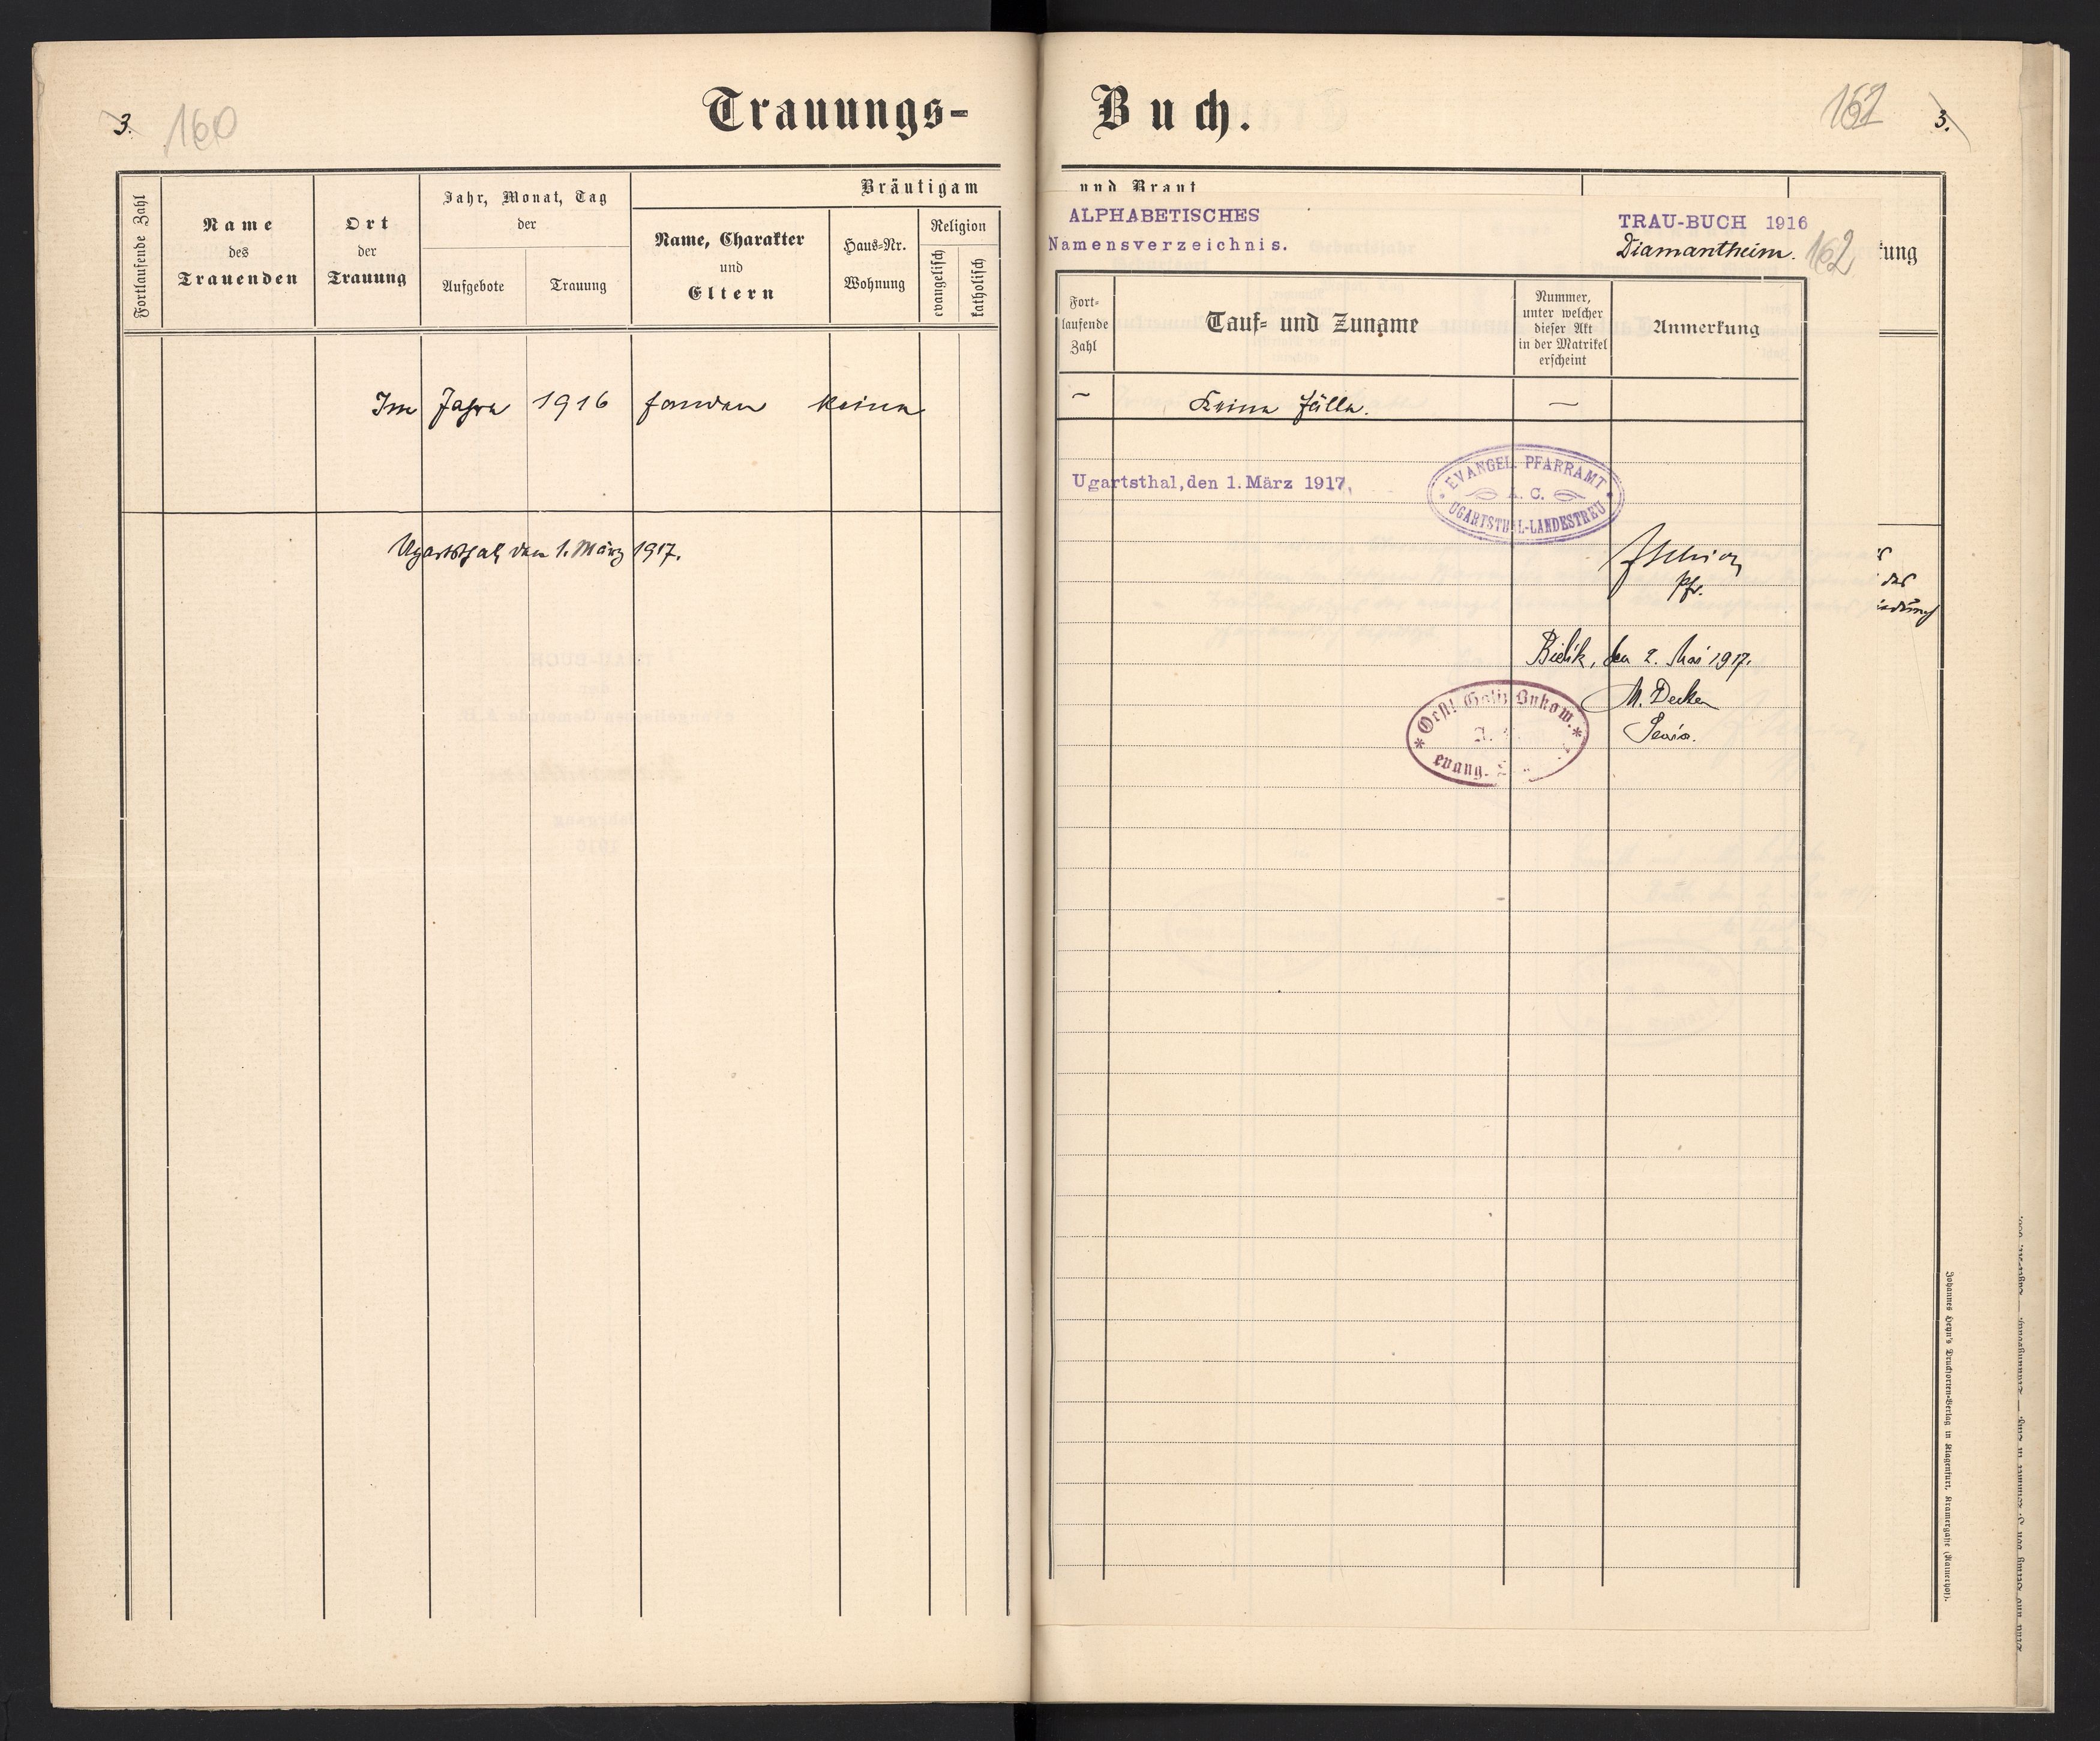 3. 160
Trauungs-
Fortlaufende Zahl
Name
des
Trauenden
Ort
der
Trauung
Jahr, Monat, Tag
der
Aufgebote
Trauung
Bräutigam
Name, Charakter
und
Eltern
Haus-Nr.
Wohnung
Religion
evangelisch
katholisch
Im Jahre 1916 fanden keine
Ugartsthal, den 1. März 1917.
Buch.
161 3.
und Braut
ALPHABETISCHES
Namensverzeichnis.
TRAU-BUCH 1916
Diamantheim. 162
ung
Fort-
laufende
Zahl
Tauf- und Zuname
Nummer,
unter welcher
dieser Akt
in der Matrikel
erscheint
Anmerkung
— Keine Fälle. —
Ugartsthal, den 1. März 1917.
EVANGEL. PFARRAMT
A. C.
UGARTSTHAL-LANDESTREU
Pfr.
das
Bielik, den 2. Mai 1917.
M. Decker
Senior.
Oestl. Galiz. Bukow.
A.
evang.
Johannes Heyn's Druckerei-Verlag in Klagenfurt, Kramergasse (Rainerhof).